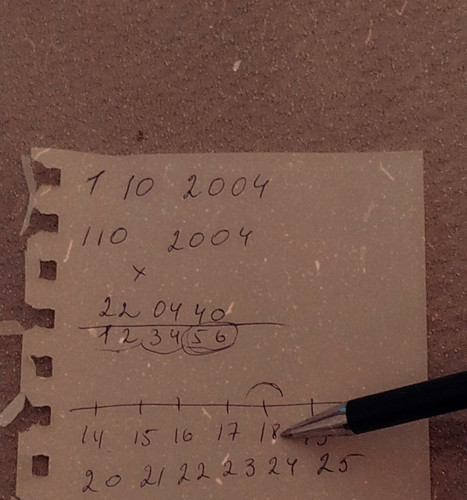 1 10 2004
110 2004
x
22 04 40
1 2 3 4 5 6
14 15 16 17 18
20 21 22 23 24 25